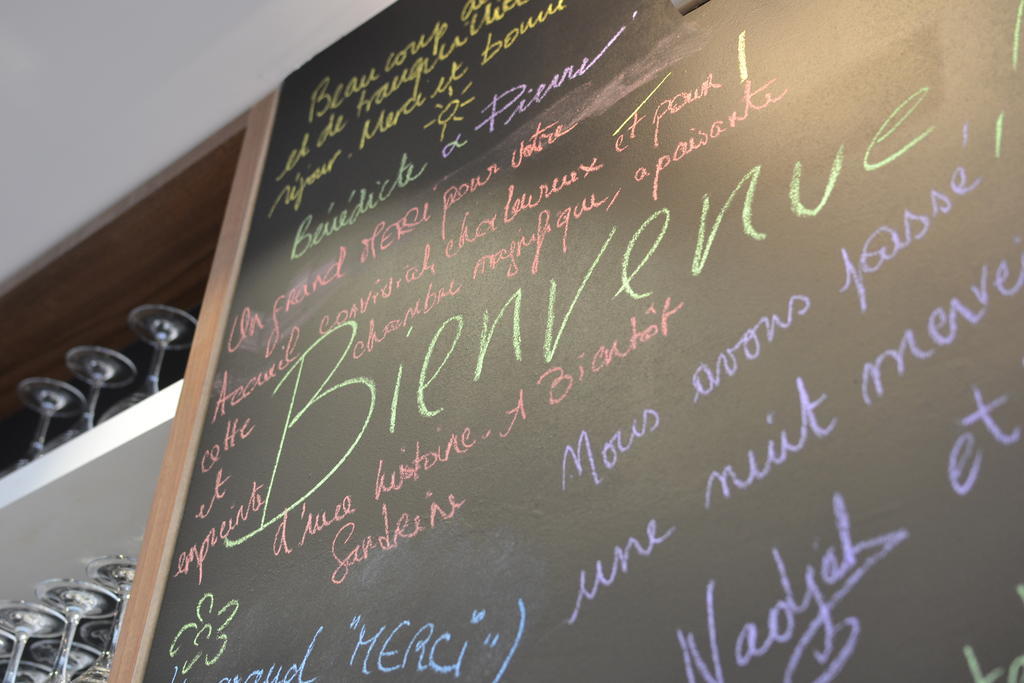 Beaucoup de
et de tranquillité
séjour. Merci et bonne
Bénédicte & Pierre
Un grand MERCi pour votre
Accueil convivial, chaleureux et pour !
cette chambre magnifique, apaisante
et
empreinte
d'une histoire. A Bientôt
Sandrine
Bienvenue
Nous avons passé
une nuit mervei
et
Nadjah
grand "MERCi")